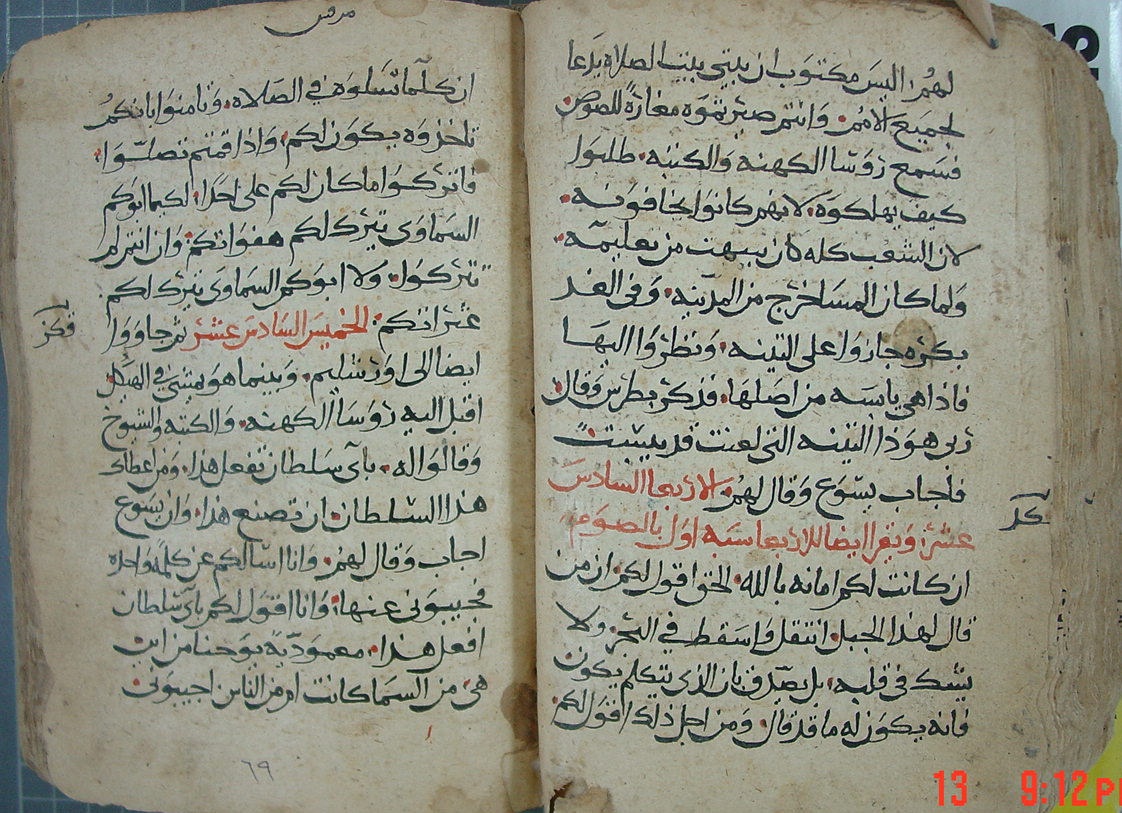 لهم: اليس مكتوب ان بيتي بيت الصلاه يدعا
لجميع الامم. وانتم صيرتموه مغارةً للصوص.
فسمع روسا الكهنه والكتبه. طلبوا
كيف يهلكوه. لانهم كانوا يخافونه.
لان الشعب كله كان يبهت من تعليمه.
ولما كان المسا خرج من المدينه. وفي الغد
بكره جازوا على التينه. ونظروا اليها
فاذا هي يابسه من اصلها. فذكر بطرس وقال
ربي هوذا التينه التي لعنت قد يبست
فاجاب يسوع وقال لهم. والاربعا السادس
عشر. ويقرا ايضا للاربعا سبه اول بالصوم
كد
ان كانت لكم امانه بالله. الحق اقول لكم ان من
قال لهذا الجبل انتقل فاسقط في البحر. ولا
يشك في قلبه. بل يصدق بان الذي يتكلم يكون
فانه يكون له ما قد قال. ومن اجل ذلك اقول لكم
مرقس
ان كلما تسلوه في الصلاه. وتامنوا بانكم
تاخذوه يكون لكم. واذا قمتم تصلوا
فاتركوا ما كان لكم على احد. لكيما ابوكم
السماوي يترك لكم هفواتكم. وان انتم لم
تتركوا. ولا ابوكم السماوي يترك لكم
عثراتكم. الخميس السادس عشر ثم جاووا
ايضا الى اورشليم. وبينما هو يمشي في الهيكل
اقبل اليه روسا الكهنه. والكتبه والشيوخ
وقالوا له. باي سلطان تفعل هذا. ومن اعطاك
هذا السلطان ان تصنع هذا. وان يسوع
اجاب وقال لهم. وانا اسالكم عن كلمه واحده
فجيبوني عنها. وانا اقول لكم باي سلطان
افعل هذا. معمودية يوحنا من اين
هي من السما كانت ام من الناس اجيبوني
٦٩
13 9:12 P